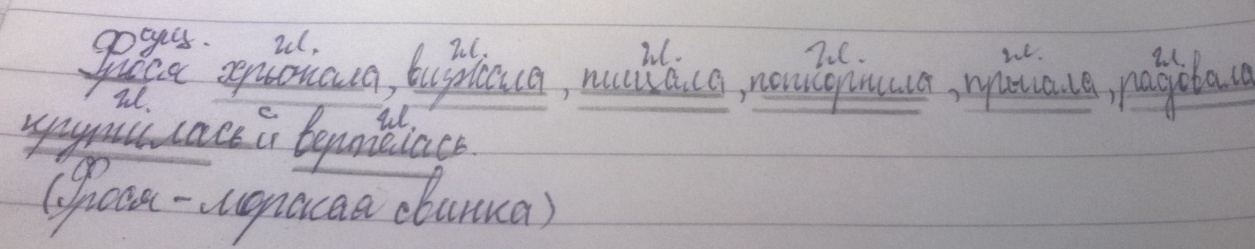 сущ. гл. гл. гл. гл. гл. гл.
Фрося хрюкала, визжала, пищала, попкорнила, прыгала, радовала
гл. с. гл.
крутилась и вертелась.
(Фрося - морская свинка)